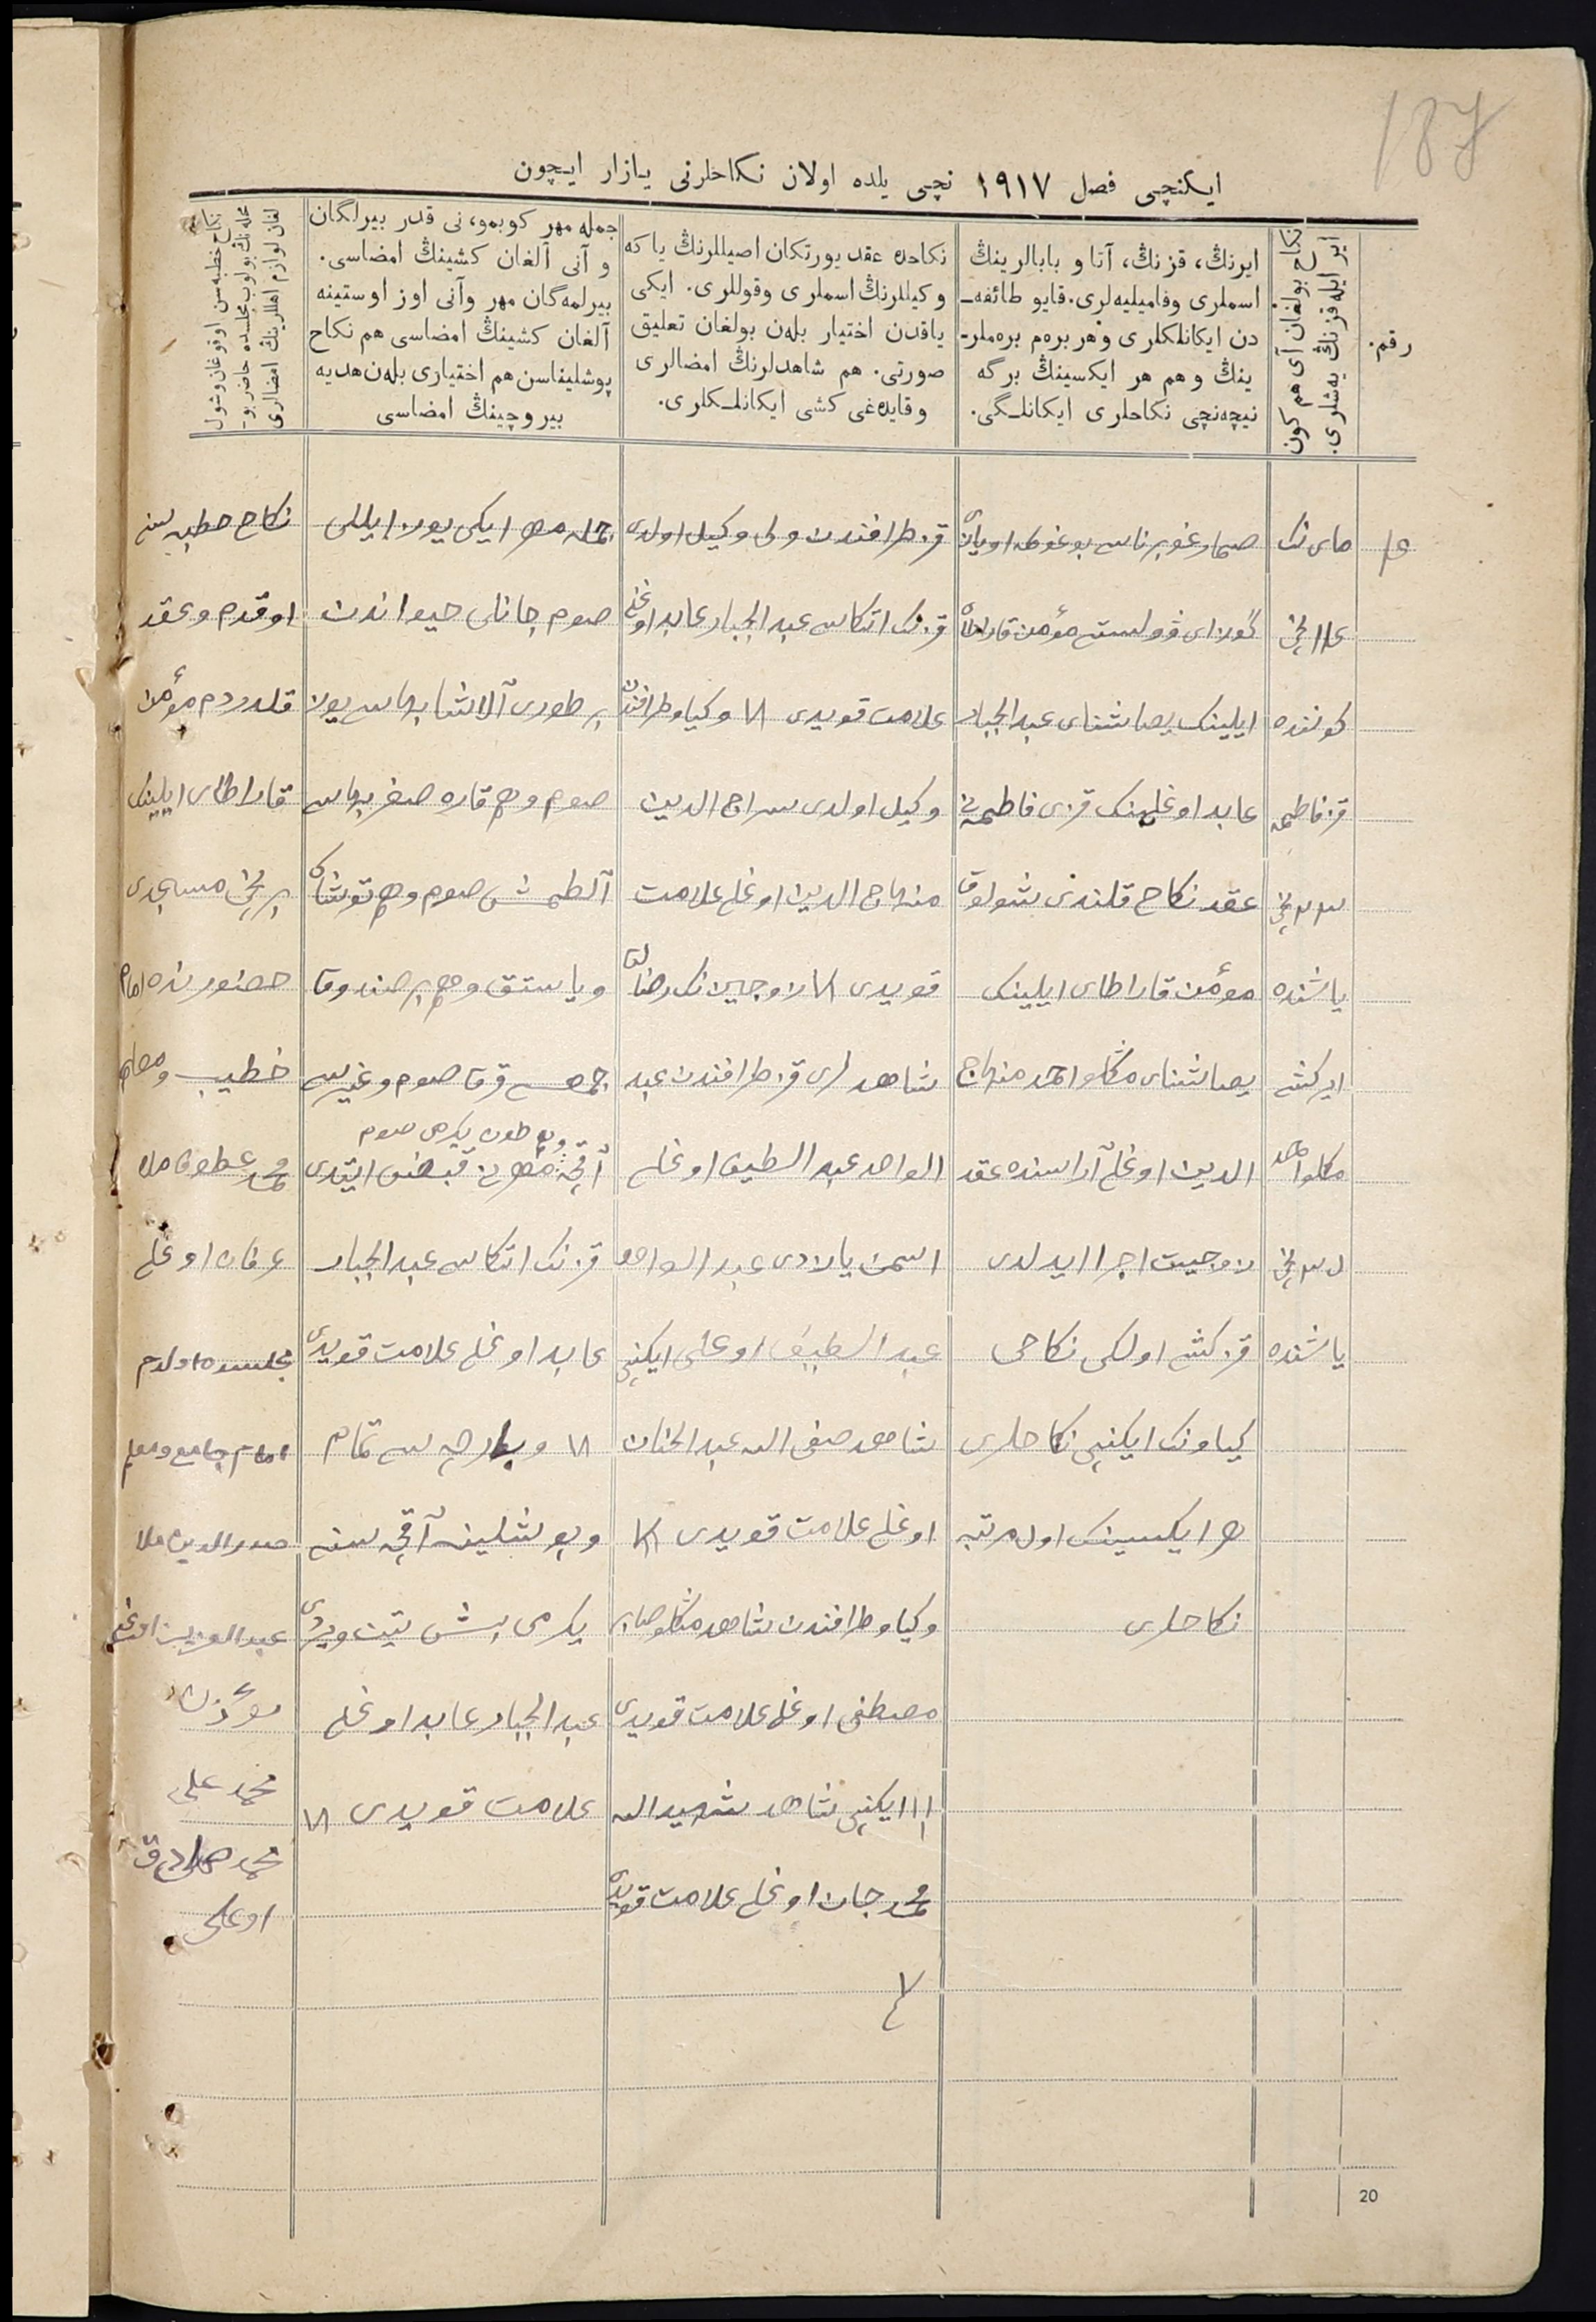 187
ایکنچی فصل ١٩١٧ نچی یلده اولان نکاحلرنی یازار ایچون
رقم.
ایر ایله قزنڭ یه‌شلری.
نکاح بولغان آی هم کون
ایرنڭ، قزنڭ، آتا و بابالرینڭ
اسملری وفامیلیه‌لری. قایو طائفه‌ـ
دن ایکانلکلری و هر بره‌م بره‌ملرـ
ینڭ و هم هر ایکسینڭ برگه
نیچه‌نچی نکاحلری ایکانلـگی.
نکاحده عقد یورتکان اصیللرنڭ یا که
وکیللرنڭ اسملری وقوللری. ایکی
یاقدن اختیار بله‌ن بولغان تعلیق
صورتی. هم شاهدلرنڭ امضالری
وقایده‌غی کشی ایکانلـکلری.
جمله مهر کوبمو، نی قدر بیرلگان
و آنی آلغان کشینڭ امضاسی.
بیرلمه‌گان مهر وآنی اوز اوستینه
آلغان کشینڭ امضاسی هم نکاح
پوشلیناسن هم اختیاری بله‌ن هدیه
بیروچینڭ امضاسی
نکاح خطبه‌سن اوقوغان وشول
محله‌نڭ بولوب مجلسده حاضر بوـ
لغان لوازم اهللرینڭ امضالری
مای نک
کوننده
قز فاطمه
یاشنده
ایر کشی
یاشنده
صمار غوبرناسی بوغوطه اویازی
ایلینک یصاشنای عبدالجبار
عابد اوغلینک قزی فاطمه‌نی
عقد نکاح قلندی شولوق
مؤمن قاراطای ایلینک
یصاشنای منهاج
الدین اوغلی آراسنده عقد
زوجیت اجرا ایدلدی
قز کشی اولکی نکاحی
کیاونک ایکنچی نکاحلری
هر ایکسینک اول مرتبه
نکاحلری
قز طرافندن ولی وکیل اولدی
قزنک اتکاسی عبدالجبار عابد اوغلی
علامت قویدی وکیاو طرافندن
وکیل اولدی سراج الدین
منهاج الدین اوغلی علامت
قویدی زوجین نک رضالق
شاهدلری قز طرافندن عبد
الواحد عبد اللطیف اوغلی
اسمن یازدی عبد الواحد
عبد اللطیف اوغلی ایکنچی
شاهد صفی الله عبد الحنان
اوغلی علامت قویدی
وکیاو طرافندن شاهد
مصطفی اوغلی علامت قویدی
ایکنچی شاهد شهید الله
محمد جان اوغلی علامت قویدی
جمله مهر ایکی یوز ایللی
صوم جانلی حیواندن
بر طوری آلاشا بهاسی یوز
صوم وهم قاره صغر بهاسی
آلطمش صوم وهم توشاک
ویاستق وهم بر صندوق
جمعسی قرق صوم وغیرسی
یکرمی صوم
آقچه مهرنی قبض ایتدی
قزنک اتکاسی عبدالجبار
عابد اوغلی علامت قویدی
تمام
وپوشلینه آقچه سنه
یکرمی بش تیت ویردی
عبد الجبار عابد اوغلی
علامت قویدی
نکاح خطبه سنی
اوقدم وعقد
قلدردم مؤمن
قاراطای ایلینک
برنچی مسجدی
حضورنده امام
خطیب ومعلم
محمد
عرفان اوغلی
مجلسده اولدم
امام جامع ومعلم
صدرالدین ملا
عبد العزیز اوغلی
مؤذن
محمد علی
محمد صادق
اوغلی
20